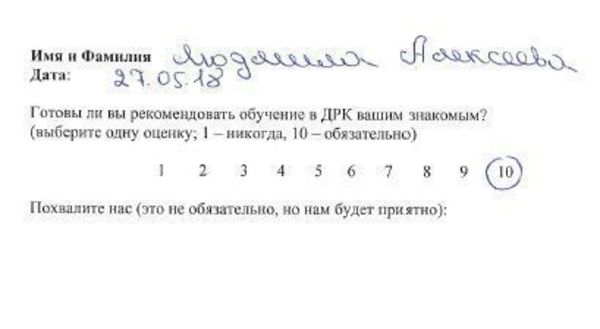 Имя и Фамилия Людмила Алексеева
Дата: 27.05.18
Готовы ли вы рекомендовать обучение в ДРК вашим знакомым?
(выберите одну оценку; 1 – никогда, 10 – обязательно)
1 2 3 4 5 6 7 8 9 10
Похвалите нас (это не обязательно, но нам будет приятно):